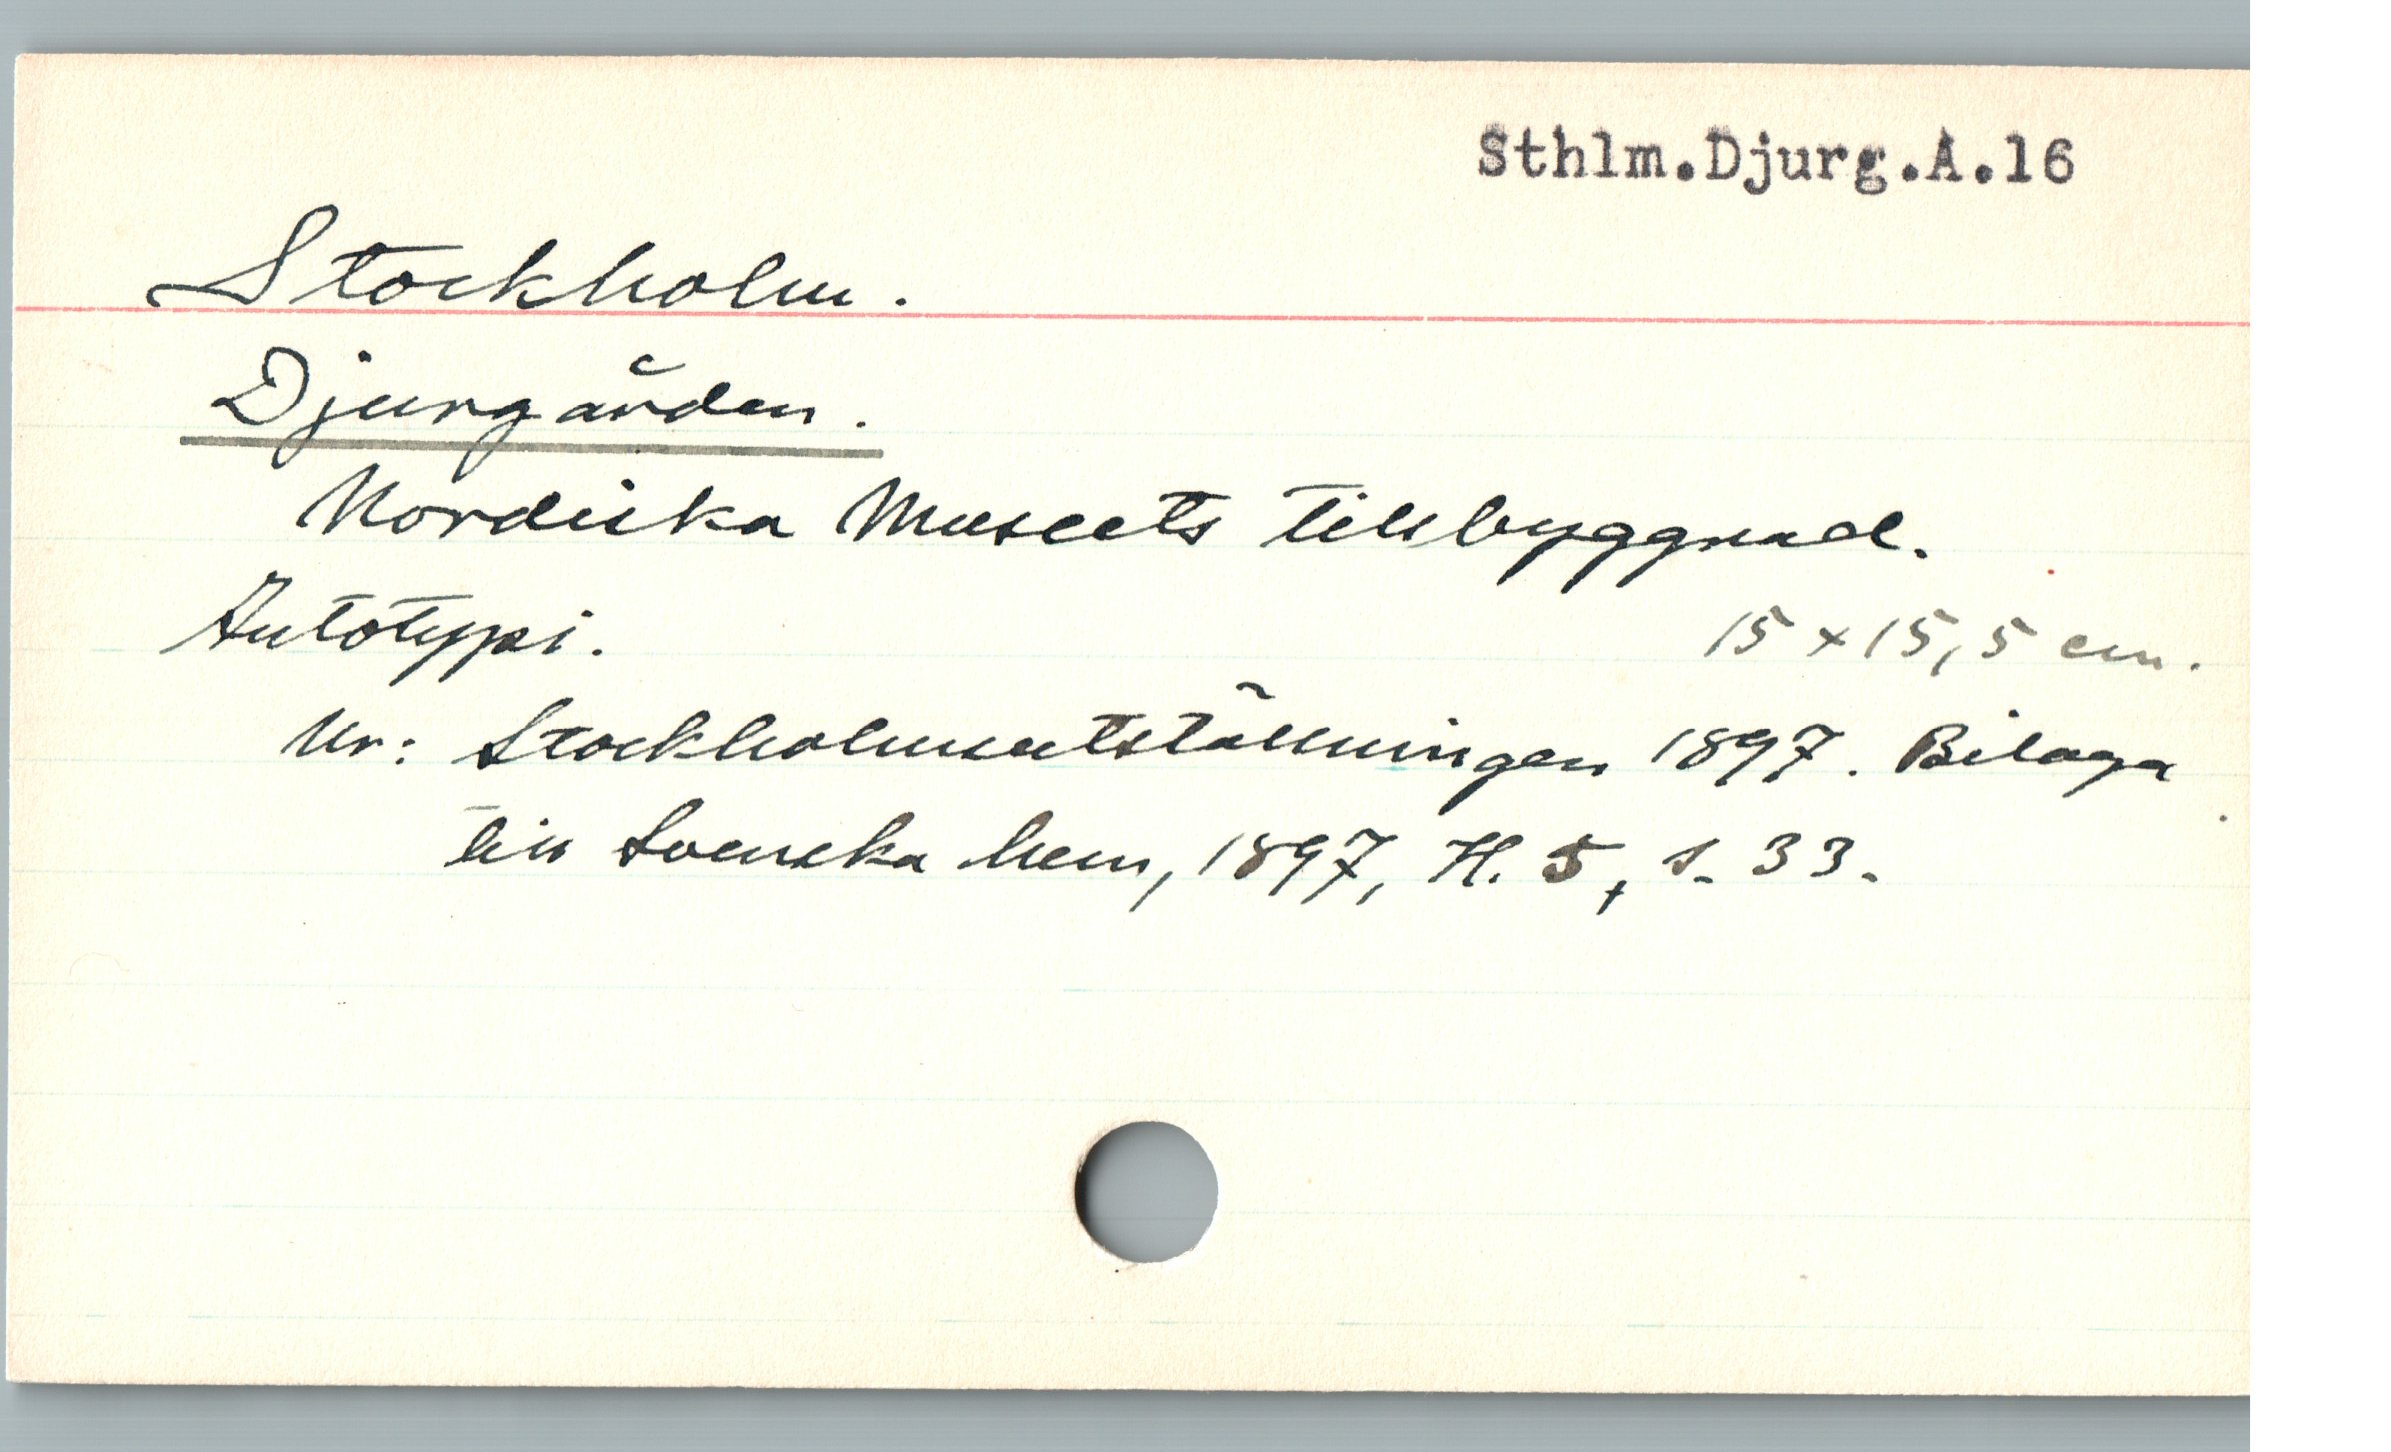 Sthlm.Djurg.A.16
Stockholm.
Djurgården.
Nordiska Museets tillbyggnad.
Autotypi.
15 x 15,5 cm.
Ur: Stockholmsutställningen 1897. Bilaga
till Svenska hem, 1897, H. 5, s. 33.